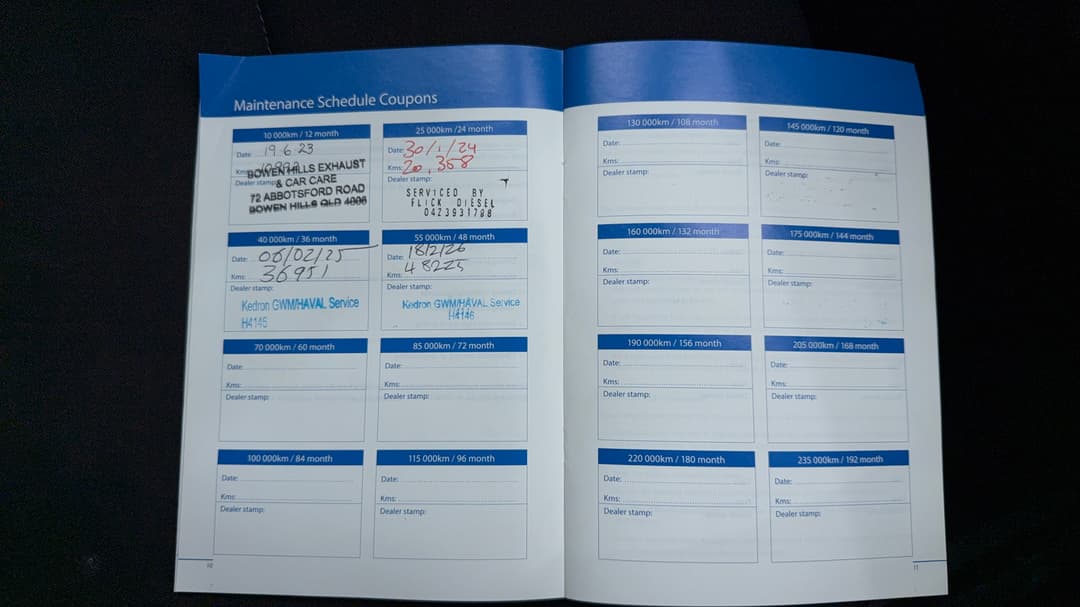 Maintenance Schedule Coupons
10 000km / 12 month
Date: 19 6 23
Kms:
Dealer stamp:
BOWEN HILLS EXHAUST
& CAR CARE
72 ABBOTSFORD ROAD
BOWEN HILLS QLD 4006
25 000km /24 month
Date: 30/1/24
Kms: 20,358
Dealer stamp:
SERVICED BY
FLICK DIESEL
0423931798
40 000km / 36 month
Date: 06/02/25
Kms: 36951
Dealer stamp:
Kedron GWM/HAVAL Service
H4145
55 000km / 48 month
Date: 18/2/26
Kms: 48225
Dealer stamp:
Kedron GWM/HAVAL Service
H4146
70 000km / 60 month
Date:
Kms:
Dealer stamp:
85 000km / 72 month
Date:
Kms:
Dealer stamp:
100 000km / 84 month
Date:
Kms:
Dealer stamp:
115 000km / 96 month
Date:
Kms:
Dealer stamp:
10
130 000km / 108 month
Date:
Kms:
Dealer stamp:
145 000km / 120 month
Date:
Kms:
Dealer stamp:
160 000km / 132 month
Date:
Kms:
Dealer stamp:
175 000km / 144 month
Date:
Kms:
Dealer stamp:
190 000km / 156 month
Date:
Kms:
Dealer stamp:
205 000km / 168 month
Date:
Kms:
Dealer stamp:
220 000km / 180 month
Date:
Kms:
Dealer stamp:
235 000km / 192 month
Date:
Kms:
Dealer stamp:
11